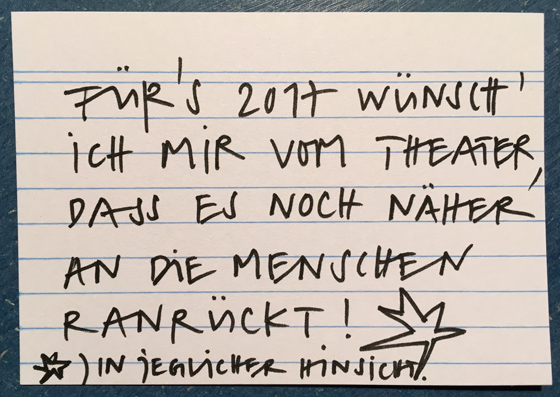 FÜR'S 2017 WÜNSCH'
ICH MIR VOM THEATER,
DASS ES NOCH NÄHER
AN DIE MENSCHEN
RANRÜCKT!
) IN JEGLICHER HINSICHT.